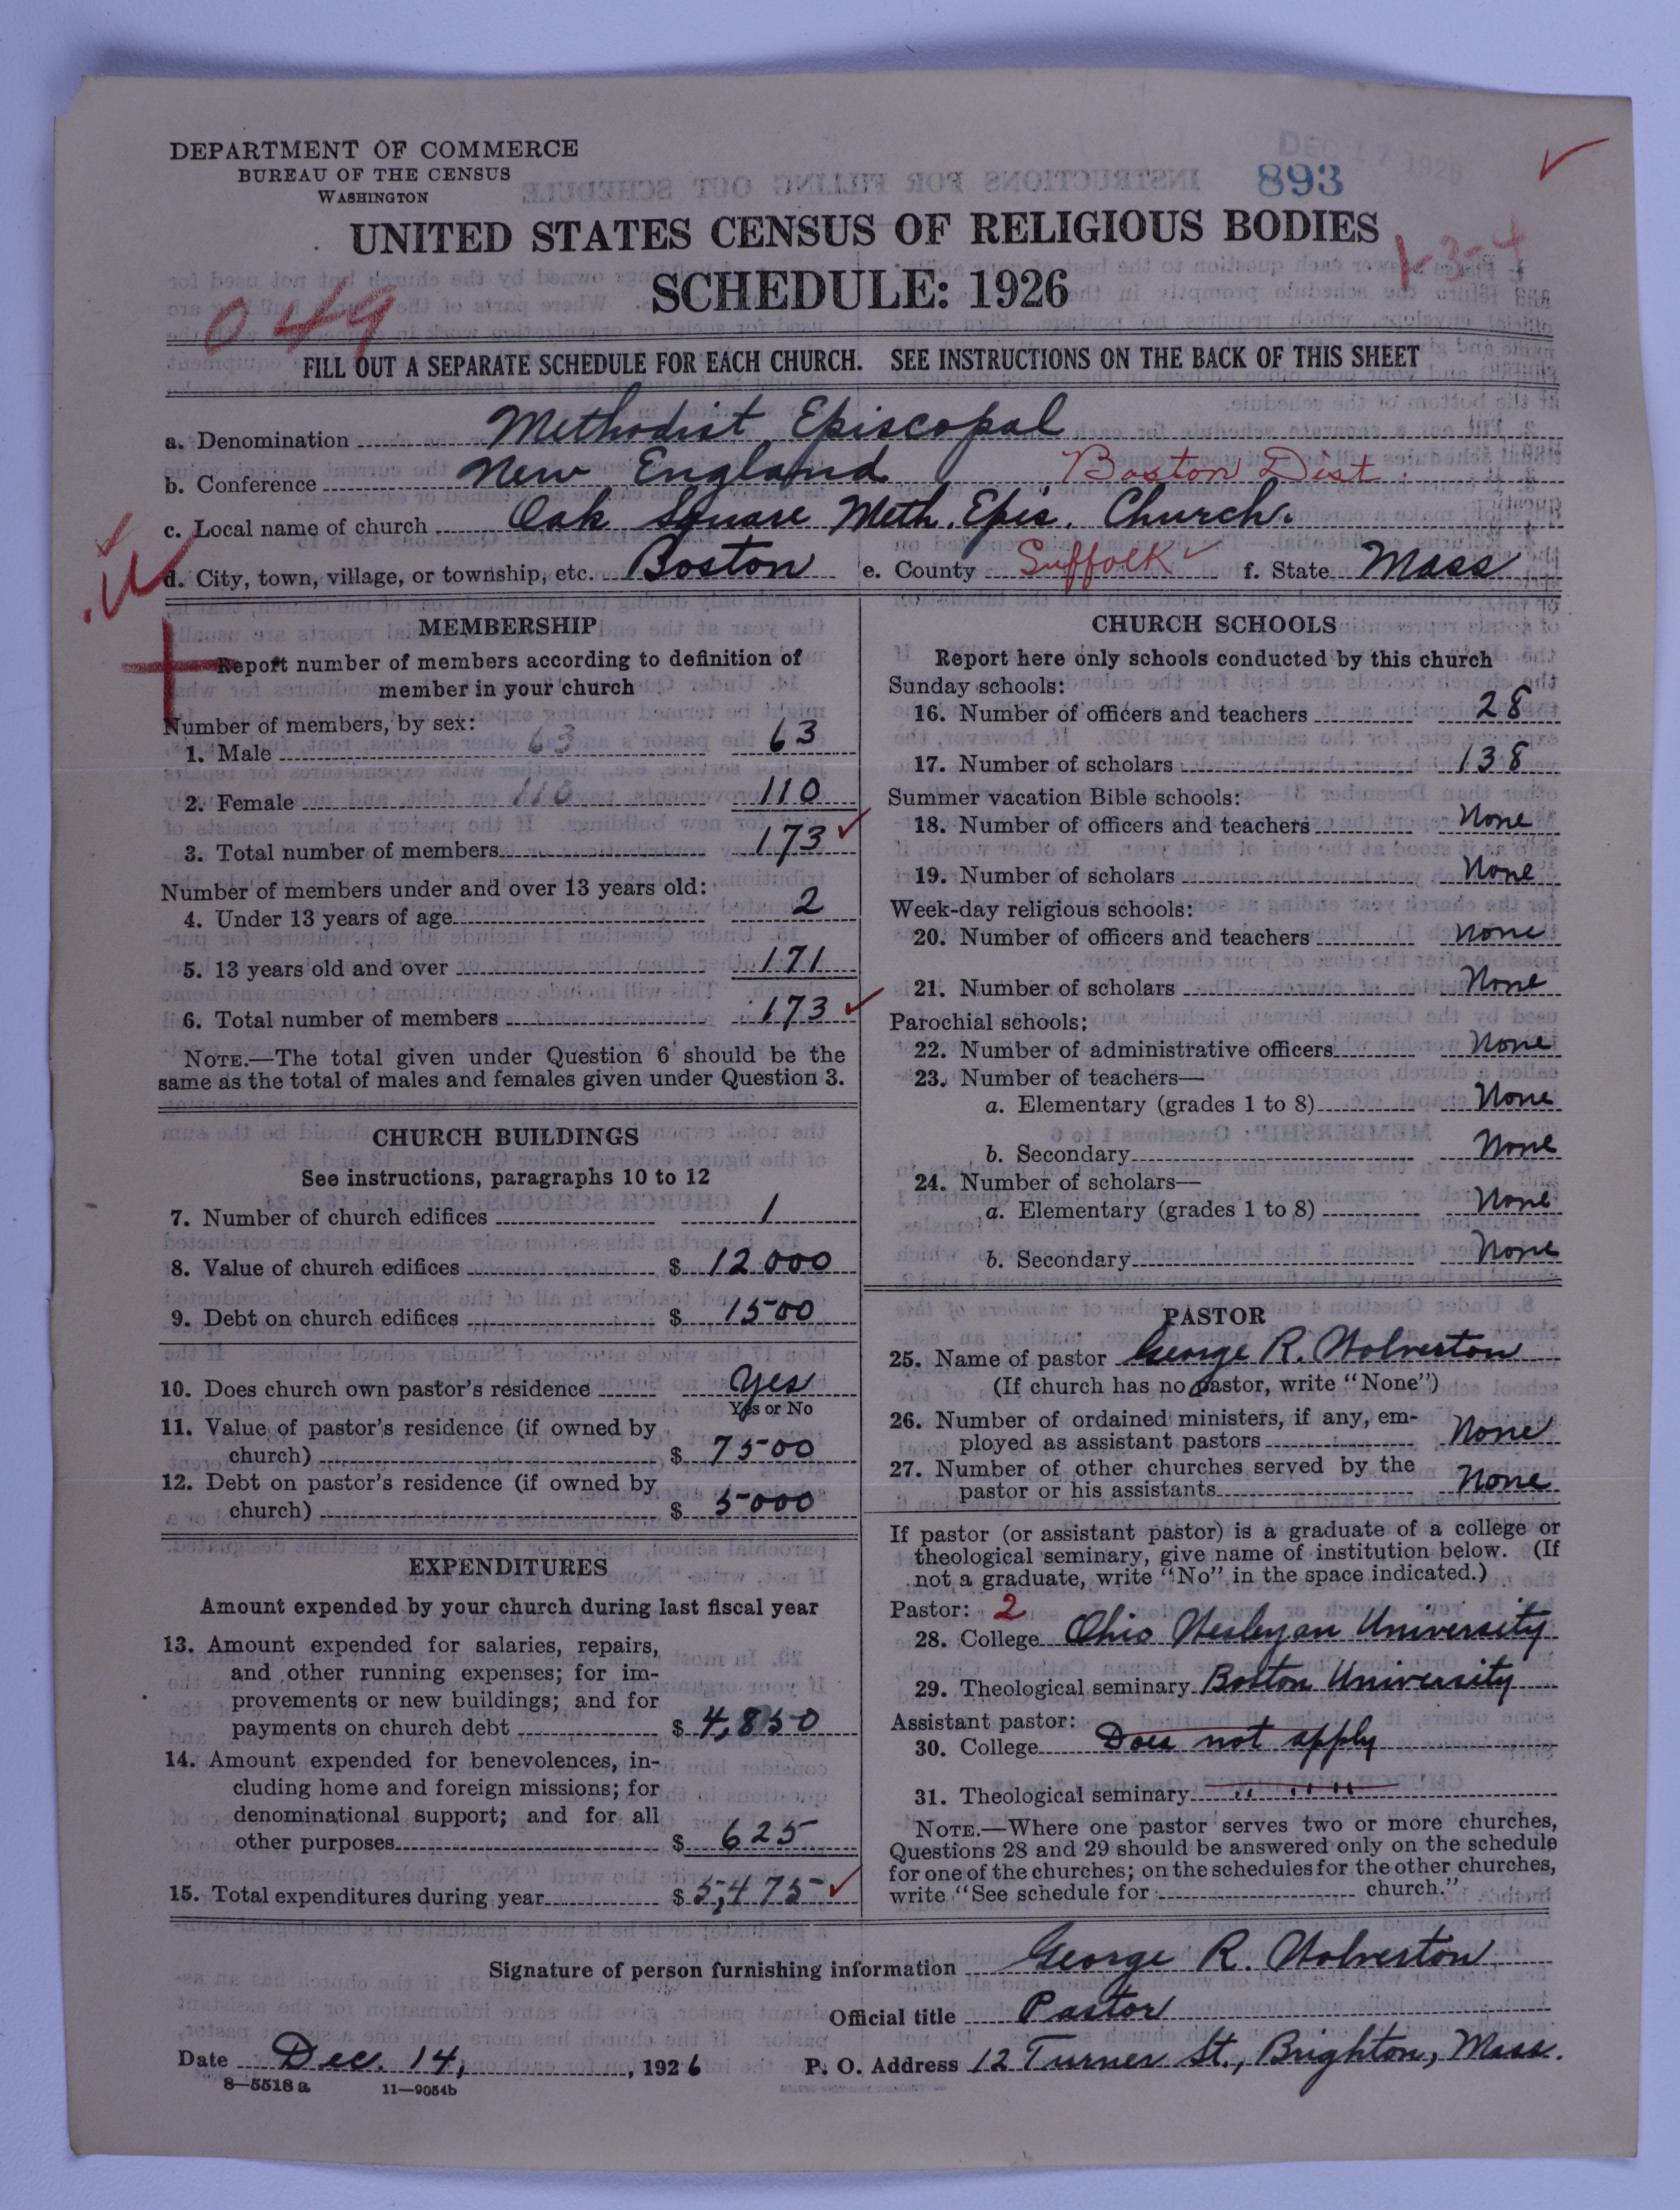 DEPARTMENT OF COMMERCE
BUREAU OF THE CENSUS
WASHINGTON
DEC 17 1926
893
UNITED STATES CENSUS OF RELIGIOUS BODIES
1-3-4
SCHEDULE: 1926
049
FILL OUT A SEPARATE SCHEDULE FOR EACH CHURCH. SEE INSTRUCTIONS ON THE BACK OF THIS SHEET
a. Denomination Methodist Episcopal
b. Conference New England Boston Dist.
c. Local name of church Oak Square Meth. Epis. Church.
d. City, town, village, or township, etc. Boston e. County Suffolk f. State Mass
MEMBERSHIP
Report number of members according to definition of
member in your church
Number of members, by sex:
1. Male 63 63
2. Female 110 110
3. Total number of members 173
Number of members under and over 13 years old:
4. Under 13 years of age 2
5. 13 years old and over 171
6. Total number of members 173
NOTE.—The total given under Question 6 should be the
same as the total of males and females given under Question 3.
CHURCH BUILDINGS
See instructions, paragraphs 10 to 12
7. Number of church edifices 1
8. Value of church edifices $ 12000
9. Debt on church edifices $ 1500
10. Does church own pastor's residence Yes
Yes or No
11. Value of pastor's residence (if owned by
church) $ 7500
12. Debt on pastor's residence (if owned by
church) $ 5000
EXPENDITURES
Amount expended by your church during last fiscal year
13. Amount expended for salaries, repairs,
and other running expenses; for im-
provements or new buildings; and for
payments on church debt $ 4,850
14. Amount expended for benevolences, in-
cluding home and foreign missions; for
denominational support; and for all
other purposes $ 625
15. Total expenditures during year $ 5,475
CHURCH SCHOOLS
Report here only schools conducted by this church
Sunday schools:
16. Number of officers and teachers 28
17. Number of scholars 138
Summer vacation Bible schools:
18. Number of officers and teachers None
19. Number of scholars None
Week-day religious schools:
20. Number of officers and teachers None
21. Number of scholars None
Parochial schools:
22. Number of administrative officers None
23. Number of teachers—
a. Elementary (grades 1 to 8) None
b. Secondary None
24. Number of scholars—
a. Elementary (grades 1 to 8) None
b. Secondary None
PASTOR
25. Name of pastor George R. Wolverton
(If church has no pastor, write "None")
26. Number of ordained ministers, if any, em-
ployed as assistant pastors None
27. Number of other churches served by the
pastor or his assistants None
If pastor (or assistant pastor) is a graduate of a college or
theological seminary, give name of institution below. (If
not a graduate, write "No" in the space indicated.)
Pastor: 2
28. College Ohio Wesleyan University
29. Theological seminary Boston University
Assistant pastor:
30. College Does not apply
31. Theological seminary " " "
NOTE.—Where one pastor serves two or more churches,
Questions 28 and 29 should be answered only on the schedule
for one of the churches; on the schedules for the other churches,
write "See schedule for church."
Signature of person furnishing information George R. Wolverton
Official title Pastor
Date Dec. 14, 1926 P. O. Address 12 Turner St., Brighton, Mass.
8—5518a 11—9054b